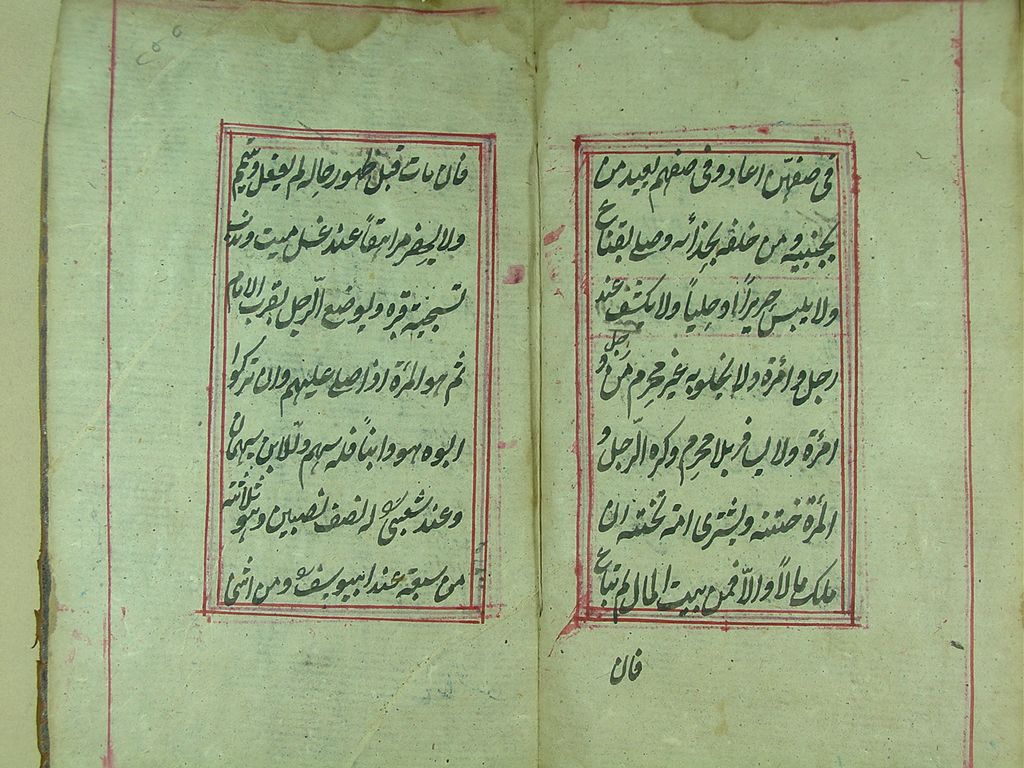 فی صفهن اعاد وفی صفهم یعید من
بجنبیه ومن خلفه بحذائه وصلی بقناع
ولا یلبس حریراً او حلیاً ولا یکشف عند
رجل وامرأة ولا یخلو به غیر محرم من رجل و
امرأة ولا یسافر بلا محرم وکره الرجل و
المرأة ختنه ویشتری امة تختنه ان
ملک مالاً والّا فمن بیت المال ثم تباع
فان
فان مات قبل ظهور حاله لم یغسل وتیمم
ولا یحضر مراهقاً عند غسل میت وندب
تسجیة قبره ویوضع الرجل بقرب الامام
ثم هو المرأة اذا صلی علیهم وان ترکوا
ابوه هو وابناً فله سهم وللابن سهمان
وعند شعبیؒ له نصف نصیبین وهو ثلثة
من سبعة عند ابیوسفؒ ومن اثنی